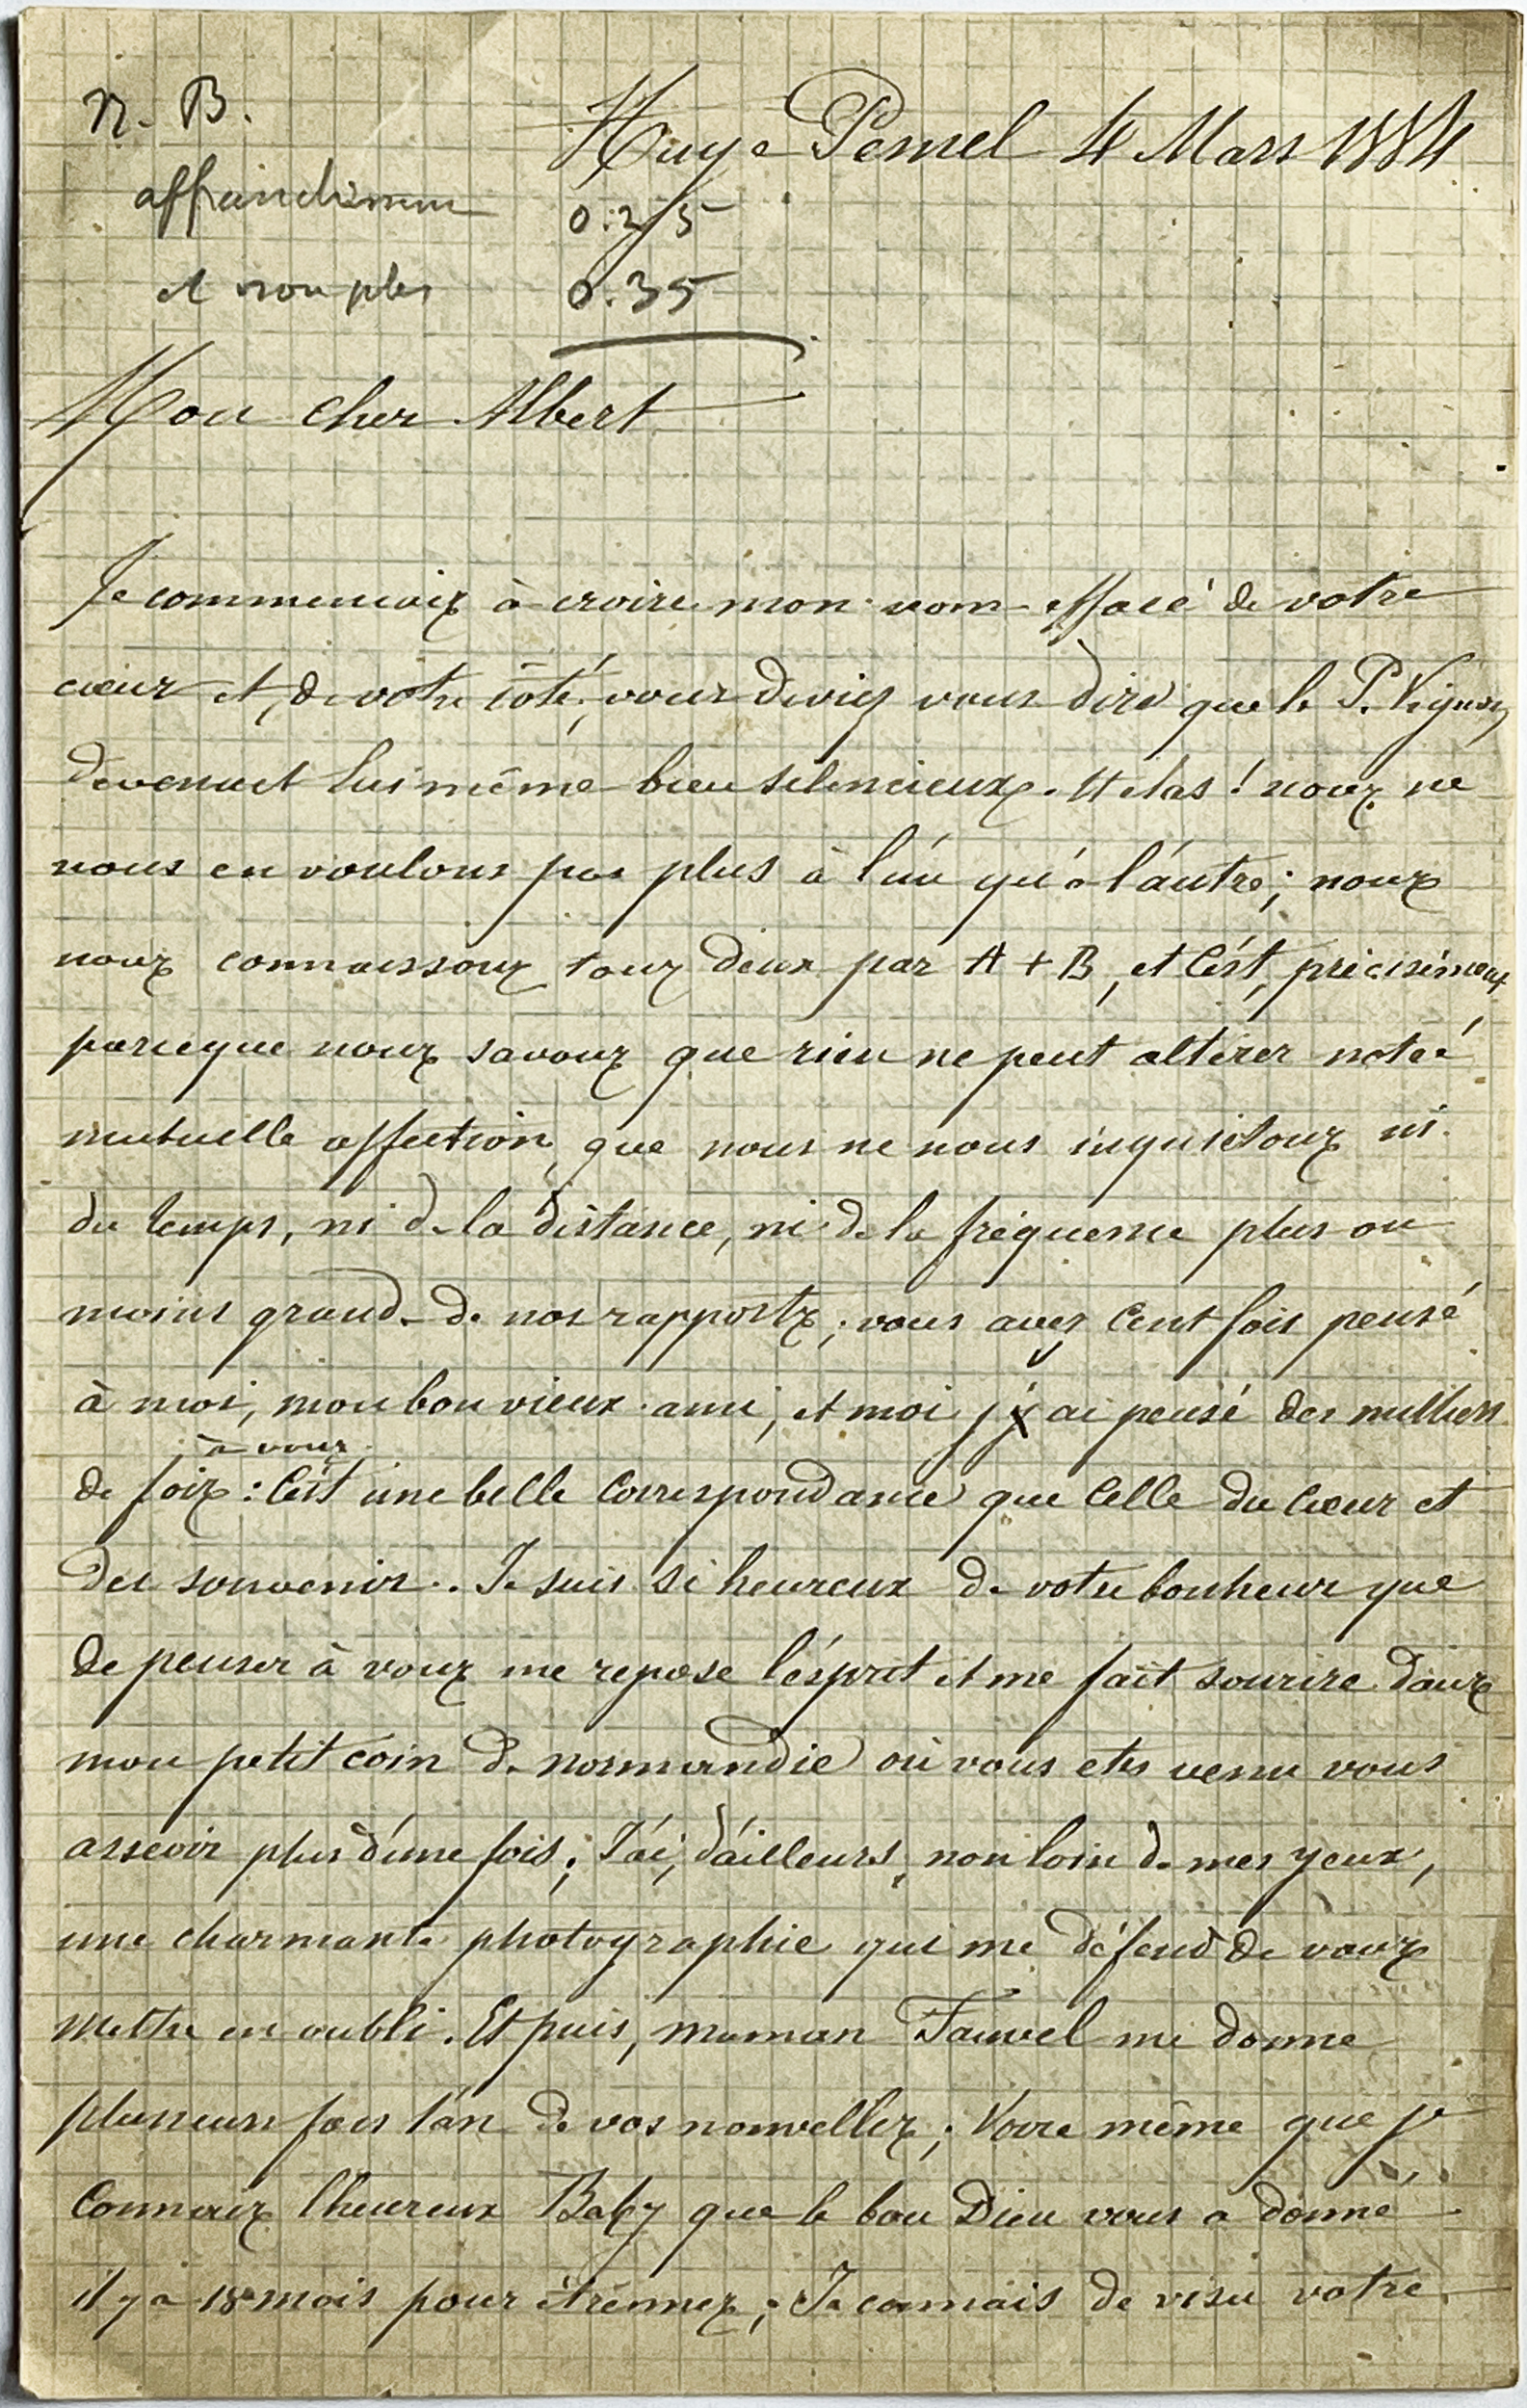 N. B.
Haye Pesnel 4 Mars 1884
affranchissement 0.25
et non plus 0.35
Mon cher Albert
Je commencais à croire mon nom effacé de votre
cœur et, de votre côté, vous deviez vous dire que le P. Vignon
devenait lui même bien silencieux. Hélas ! nous ne
nous en voulons pas plus à l'un qu'à l'autre; nous
nous connaissons tous deux par A + B, et c'est, précisément
parceque nous savons que rien ne peut altérer notre
mutuelle affection, que nous ne nous inquiétons ni
du temps, ni de la distance, ni de la fréquence plus ou
moins grande de nos rapports; vous avez cent fois pensé
à moi, mon bon vieux ami, et moi j'ai pensé des milliers
à vous
de fois : c'est une belle correspondance que celle du cœur et
des souvenirs. Je suis si heureux de votre bonheur que
de penser à vous me repose l'esprit et me fait sourire dans
mon petit coin de normandie où vous etes venu vous
asseoir plus d'une fois; J'ai, d'ailleurs, non loin de mes yeux,
une charmante photographie qui me défend de vous
mettre en oubli. Et puis, maman Fauvel me donne
plusieurs fois l'an de vos nouvelles; voire même que je
connais l'heureux Baby que le bon Dieu vous a donné
il y a 18 mois pour étrennes; Je connais de visu votre